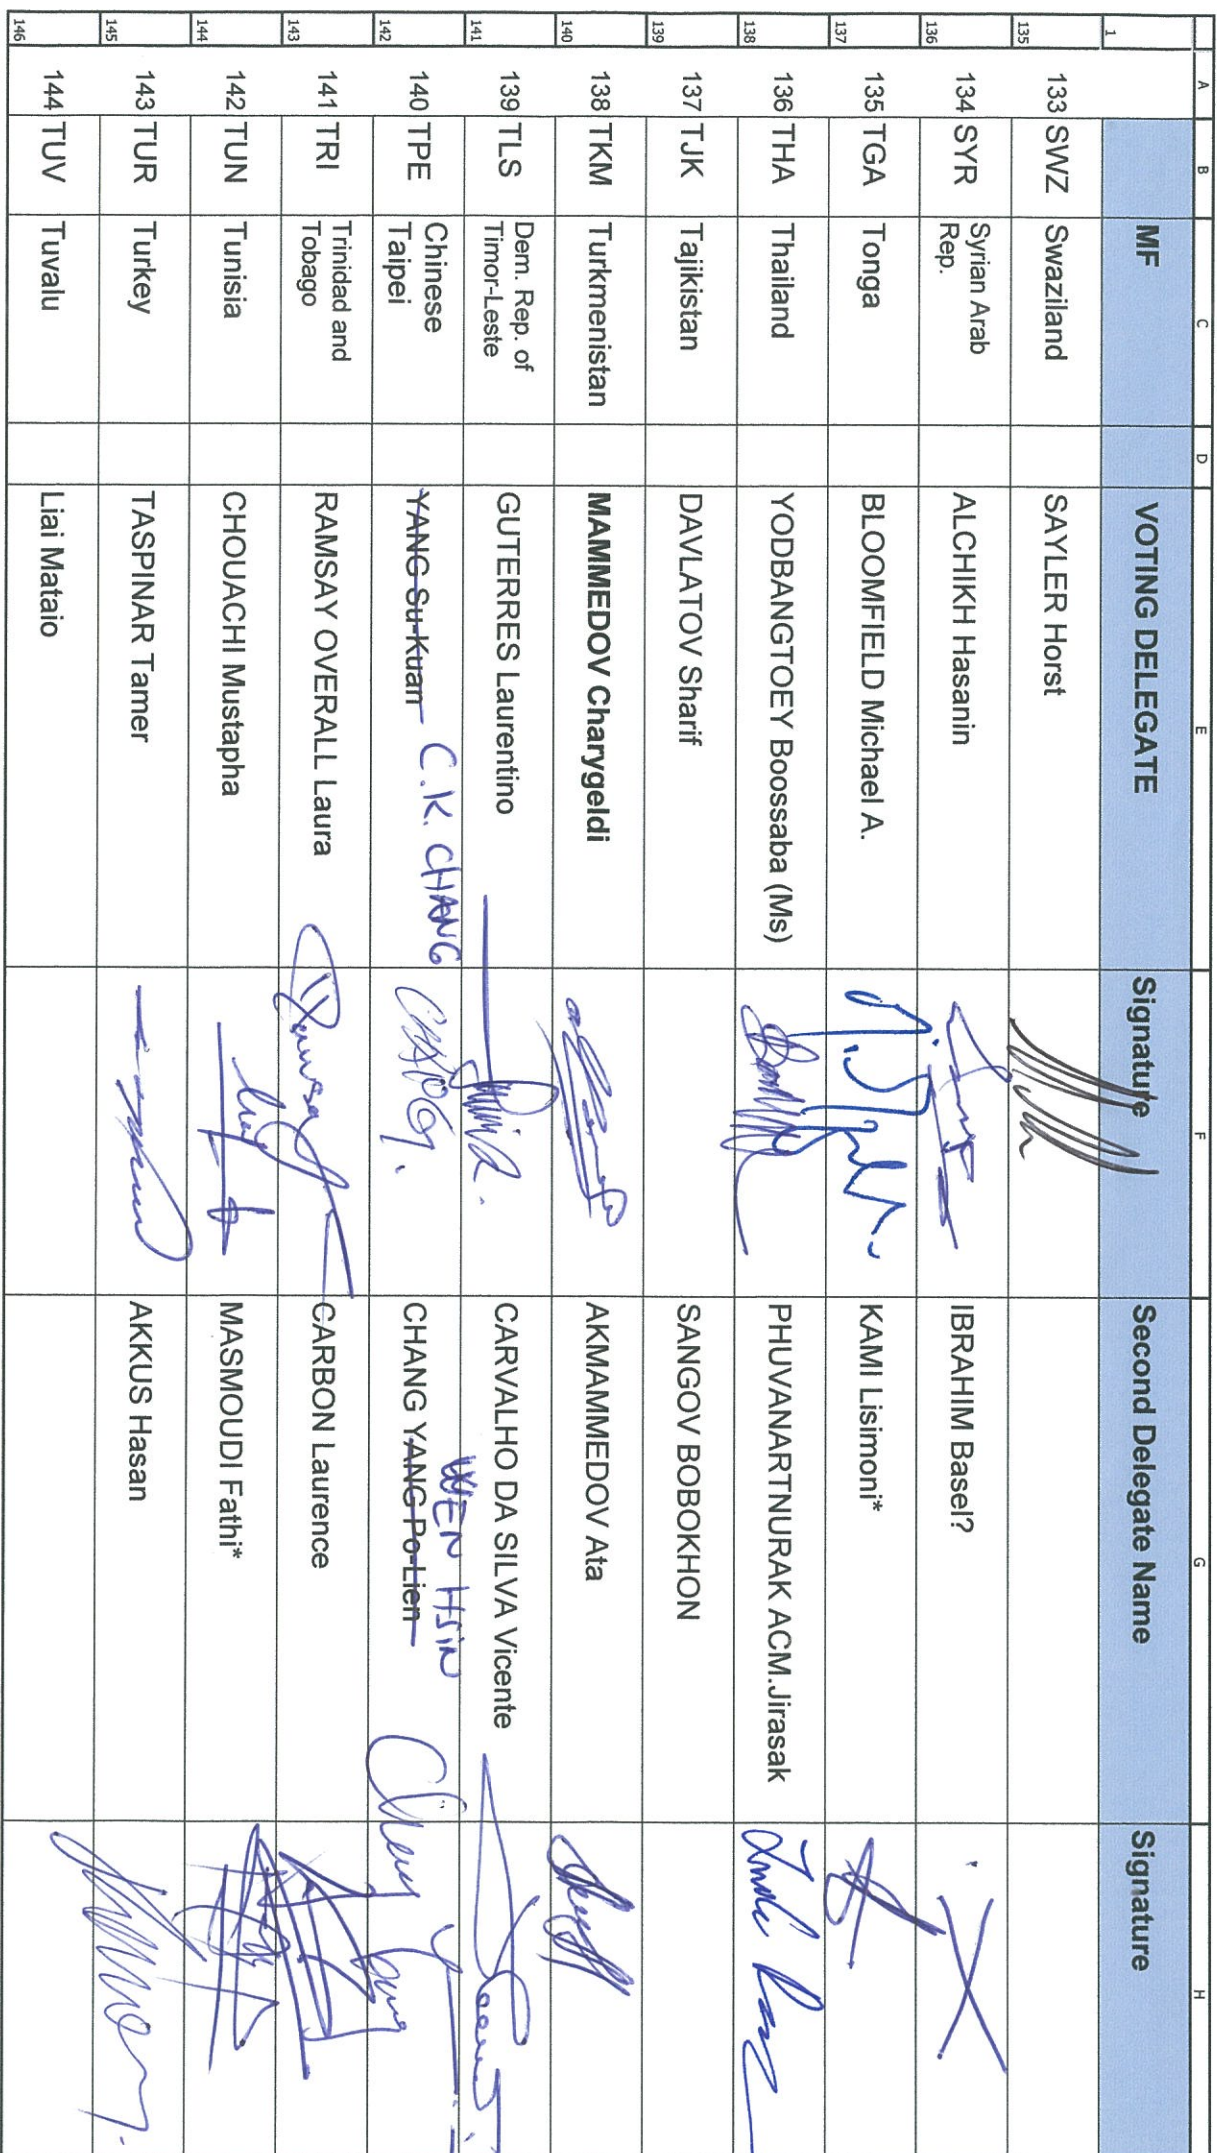 A B C D E F G H
1 MF VOTING DELEGATE Signature Second Delegate Name Signature
135 133 SWZ Swaziland SAYLER Horst
136 134 SYR Syrian Arab Rep. ALCHIKH Hasanin IBRAHIM Basel?
137 135 TGA Tonga BLOOMFIELD Michael A. KAMI Lisimoni*
138 136 THA Thailand YODBANGTOEY Boossaba (Ms) PHUVANARTNURAK ACM.Jirasak
139 137 TJK Tajikistan DAVLATOV Sharif SANGOV BOBOKHON
140 138 TKM Turkmenistan MAMMEDOV Charygeldi AKMAMMEDOV Ata
141 139 TLS Dem. Rep. of Timor-Leste GUTERRES Laurentino CARVALHO DA SILVA Vicente
142 140 TPE Chinese Taipei YANG Su-Kuan C.K. CHANG CHANG YANG Po-Lien WEN HSIN
143 141 TRI Trinidad and Tobago RAMSAY OVERALL Laura CARBON Laurence
144 142 TUN Tunisia CHOUACHI Mustapha MASMOUDI Fathi*
145 143 TUR Turkey TASPINAR Tamer AKKUS Hasan
146 144 TUV Tuvalu Liai Mataio